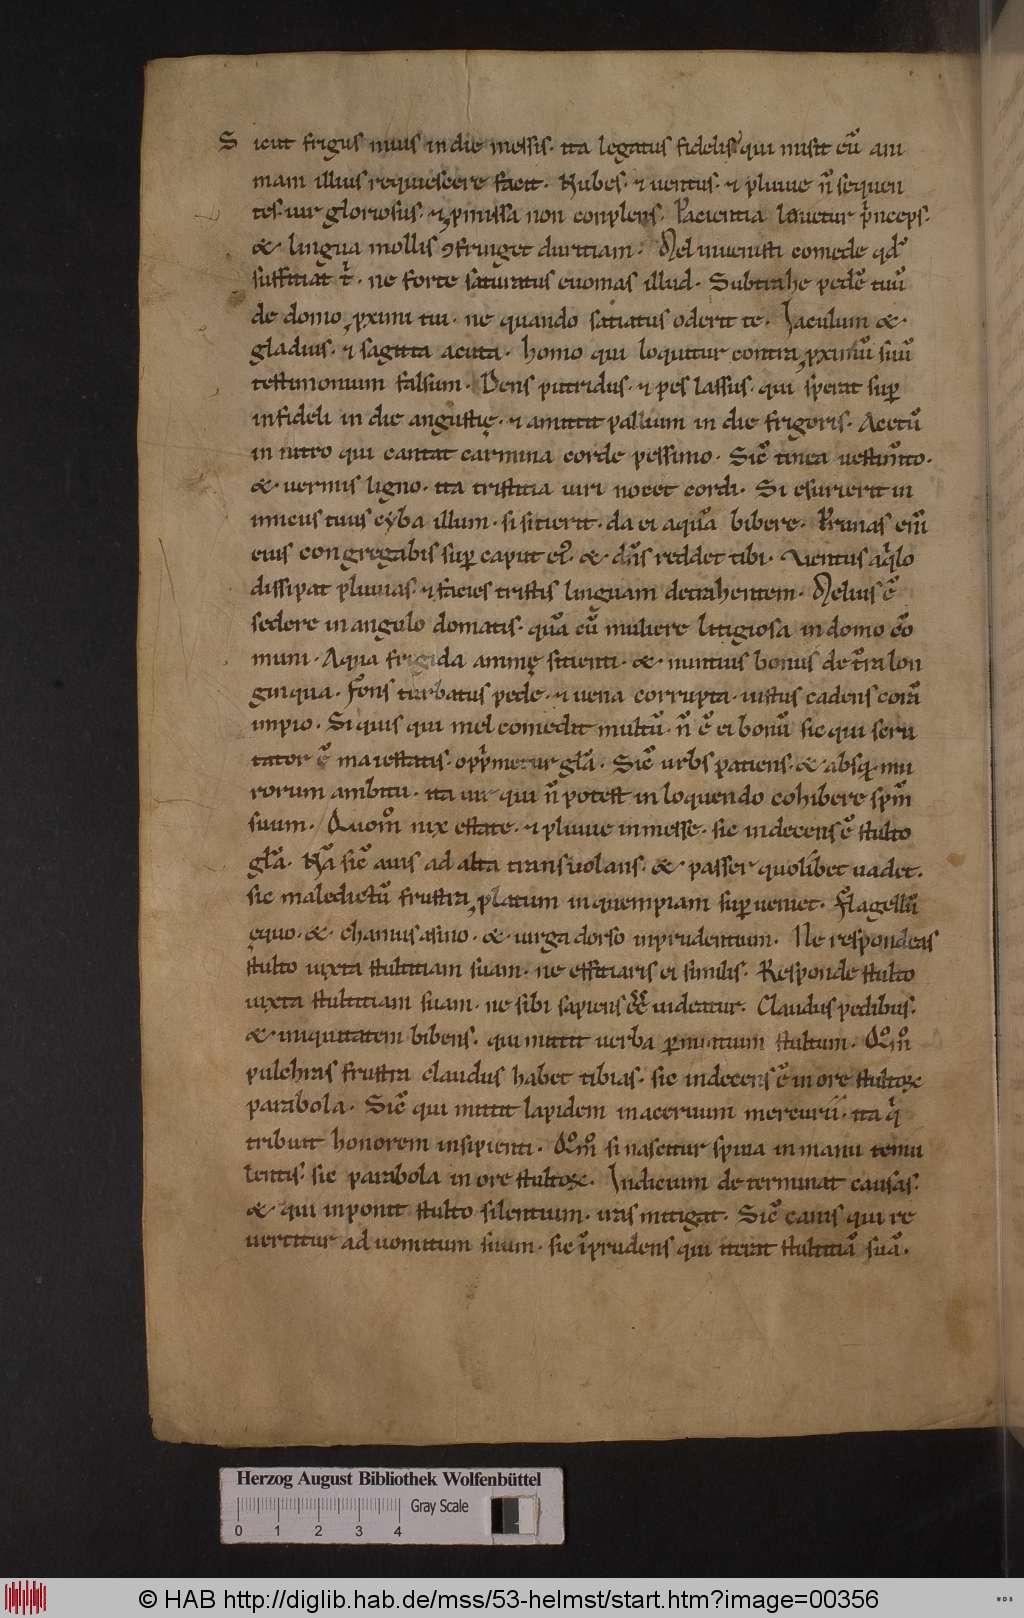 Sicut frigus niuis in die messis· ita legatus fidelis qui misit eū ani
mam illius requiescere facit· Nubes· ⁊ uentus· ⁊ pluuie n̄ sequen
tes· uir gloriosus· ⁊ ꝓmissa non conplens· Paciencia lenietur p̓nceps·
& lingua mollis ꝯfringet duritiam· Mel inuenisti comede qd̓
suffitiat t̓· ne forte saturatus euomas illud· Subtrahe pedē tuū
de domo ꝓximi tui· ne quando satiatus oderit te· Iaculum &
gladius· ⁊ sagitta acuta· homo qui loquitur contra ꝓximū suū
testimonium falsum· Dens putridus· ⁊ pes lassus· qui sperat sup̄
infideli in die angustię· ⁊ amittit pallium in die frigoris· Acetū
in nitro qui cantat carmina corde pessimo· Sic̄ tinea uestim̄to·
& uermis ligno· ita tristitia uiri nocet cordi· Si esurierit in
imicus tuus cyba illum· si sitierit· da ei aquā bibere· Prunas em̄
eius congregabis sup̄ caput ei᷒· & dn̄s reddet tibi· Uentus aq̓lo
dissipat pluuias· ⁊ facies tristis linguam detrahentem· Melius ē
sedere in angulo domatis· quā cū muliere litigiosa in domo cō
muni· Aqua frigida animę sitienti· & nuntius bonus de t̄ra lon
ginqua· Fons turbatus pede· ⁊ uena corrupta· iustus cadens corā
impio· Si quis qui mel comedit multū· n̄ ē ei bonū sic qui scru
tator ē maiestatis· opp̓metur gl̄a· Sic̄ urbs patiens· & absq· mu
rorum ambitu· ita uir qui n̄ potest in loquendo cohibere sp̄m
suum· Quom̊ nix estate· ⁊ pluuie in messe· sic indecens ē stulto
gl̄a· Nā sic̄ auis ad alta transuolans· & passer quolibet uadet·
sic maledictū frustra ꝓlatum in quempiam sup̄ueniet· Flagellū
ęquo· & chamus asino· & uirga dorso inprudentium· Ne respondeas
stulto iuxta stultitiam suam· ne effitiaris ei similis· Responde stulto
iuxta stultitiam suam· ne sibi sapiens ēē uideatur· Claudus pedibus·
& iniquitatem bibens· qui mittit uerba p̄ nuntium stultum· Q̊m̊
pulchras frustra claudus habet tibias· sic indecens ē in ore stultoꝝ
parabola· Sic̄ qui mittit lapidem in aceruum mercurii· ita q̓
tribuit honorem insipienti· Q̊m̊ si nascitur spina in manu temu
lentis· sic parabola in ore stultoꝝ· Iudicium determinat causas·
& qui inponit stulto silentium· iras mitigat· Sic̄ canis qui re
uertitur ad uomitum suum· sic īprudens qui iterat stultitiā suā·
Herzog August Bibliothek Wolfenbüttel
Gray Scale
0 1 2 3 4
© HAB http://diglib.hab.de/mss/53-helmst/start.htm?image=00356